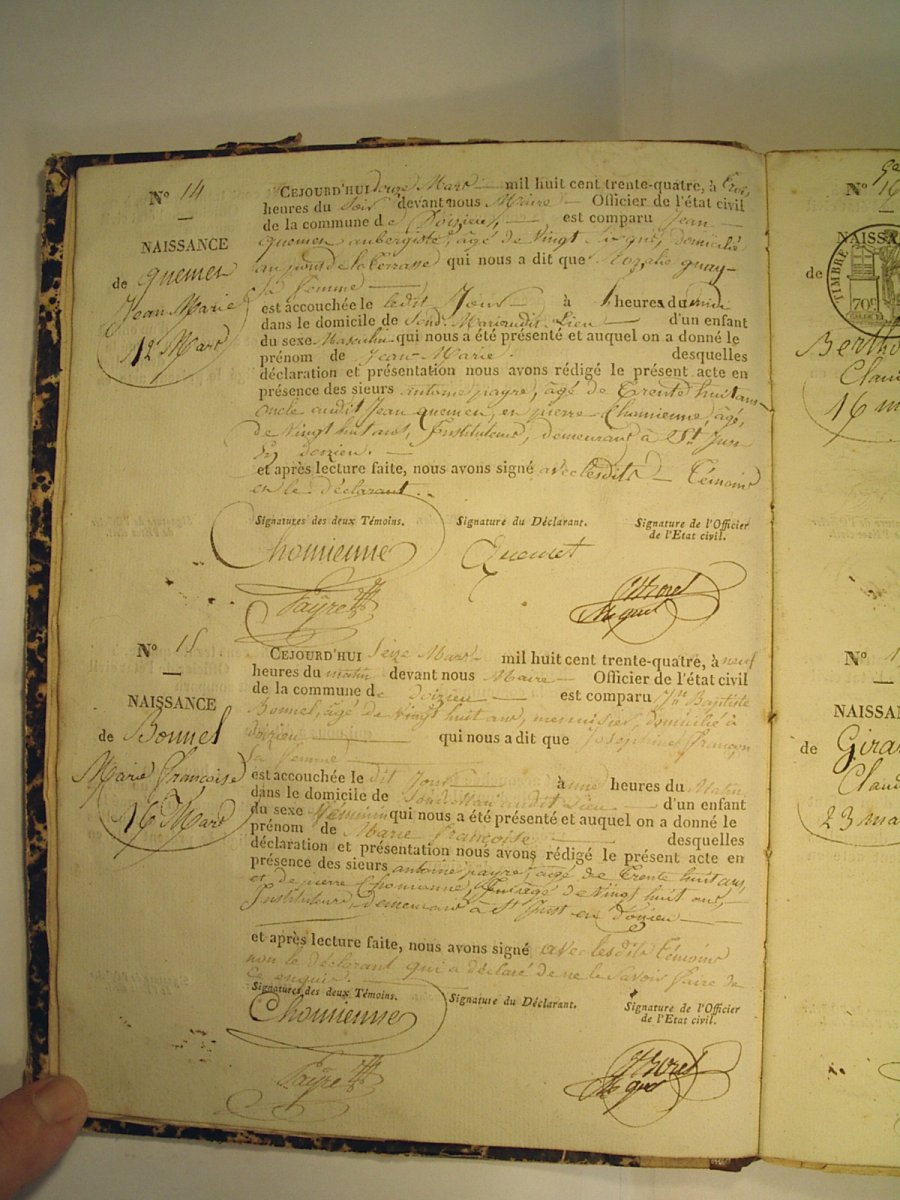 N° 14
NAISSANCE
de quemen
Jean Marie
12 Mars
CEJOURD'HUI douze Mars mil huit cent trente-quatre, à
heures du Soir devant nous Maire Officier de l'état civil
de la commune de Doizieu, est comparu Jean
quemen aubergiste, âgé de Vingt domicilié
au pont de la terrasse qui nous a dit que Rozalie quay
Sa femme
est accouchée le ledit Jour à heures du
dans le domicile de Sond. Mari audit Lieu d'un enfant
du sexe Masculin qui nous a été présenté et auquel on a donné le
prénom de Jean Marie. desquelles
déclaration et présentation nous avons rédigé le présent acte en
présence des sieurs antoine payre, âgé de Trente huit ans
oncle audit Jean quemen, en pierre Chomienne, âgé,
de Vingt huit ans, Instituteur, demeurant à St Just
En doizieu.
et après lecture faite, nous avons signé avec lesdits Témoins
en le déclarant.
Signatures des deux Témoins. Signature du Déclarant. Signature de l'Officier
de l'Etat civil.
Chomienne
Payre
N° 15
NAISSANCE
de Bonnel
Marie Françoise
16 Mars
CEJOURD'HUI Seize Mars mil huit cent trente-quatre, à neuf
heures du matin devant nous Maire Officier de l'état civil
de la commune de doizieu est comparu Jn Baptiste
Bonnel, âgé de Vingt huit ans, menuisier, domicilié à
doizieu qui nous a dit que Josephine françon
Sa femme
est accouchée le dit Jour à une heures du Matin
dans le domicile de Sond. Mari audit Lieu d'un enfant
du sexe féminin qui nous a été présenté et auquel on a donné le
prénom de Marie françoise desquelles
déclaration et présentation nous avons rédigé le présent acte en
présence des sieurs antoine payre, âgé de Trente huit ans,
et de pierre Chomienne, âgé de Vingt huit ans,
Instituteur, demeurant à St Just en Doizieu
et après lecture faite, nous avons signé avec lesdits Témoins
non le déclarant qui a déclaré de ne le Savoir faire de
ce enquis.
Signatures des deux Témoins. Signature du Déclarant. Signature de l'Officier
de l'Etat civil.
Chomienne
Payre
N° 16
NAISSA
de
TIMBRE
70c
Bertho
Clau
16 m
N° 1
NAISSA
de Gira
Claud
23 ma